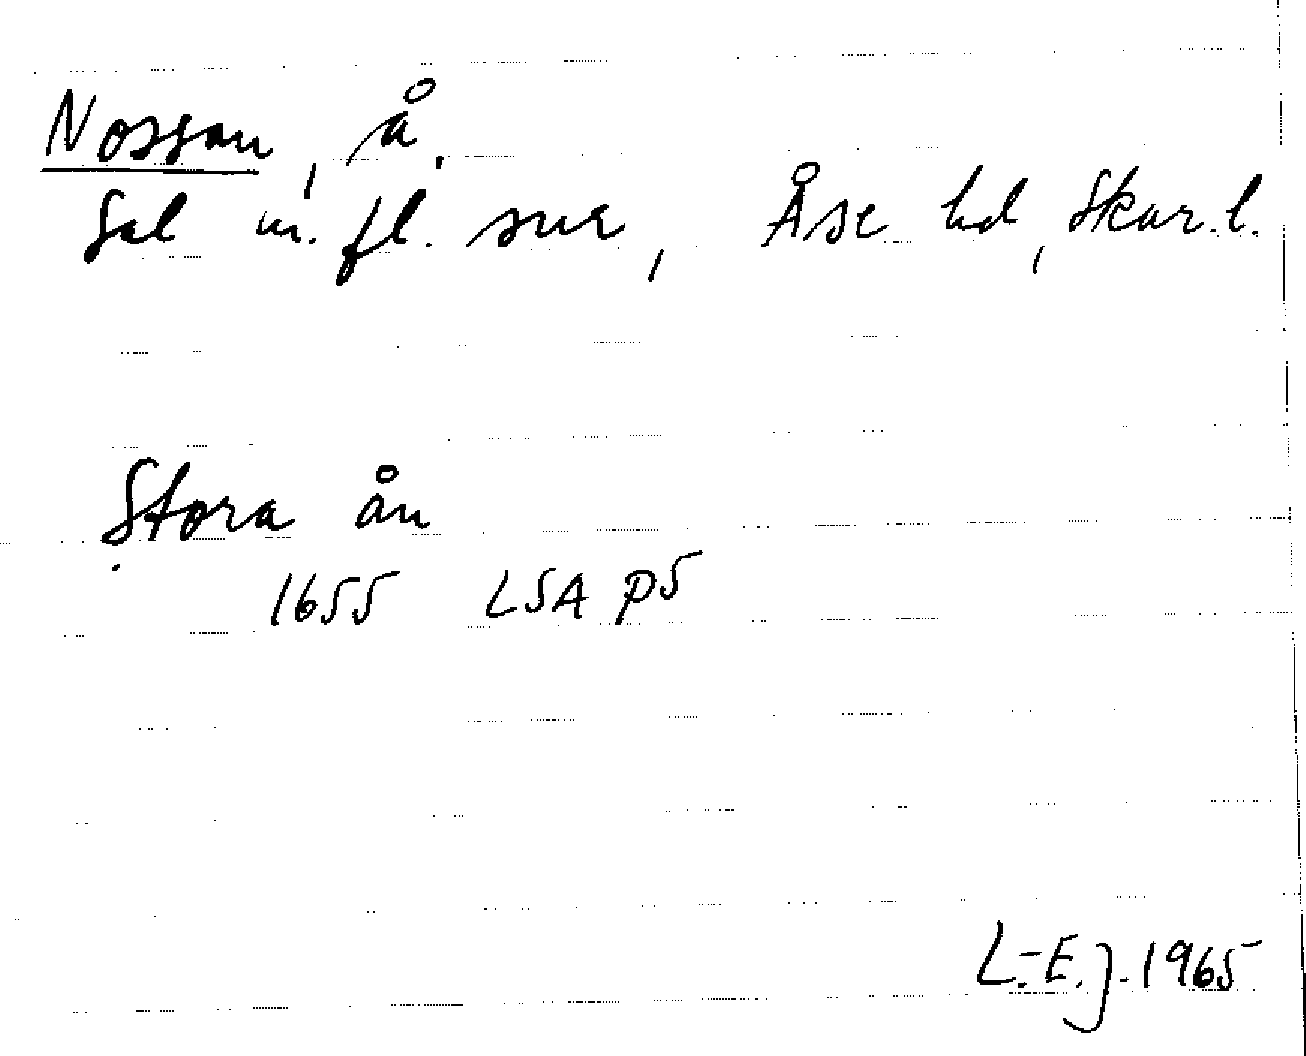 Nossan, å.
Sal m.fl. snr, Åse hd, Skar.l.
Stora ån
1655 LSA P5
L.-E.J. 1965